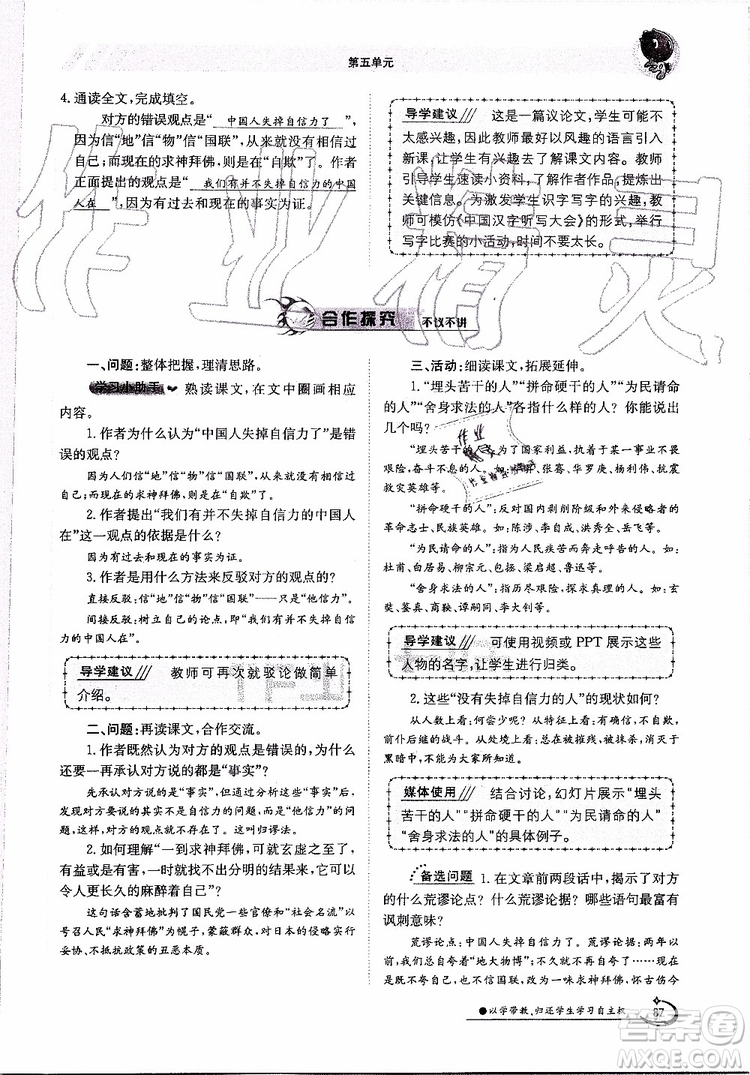 第五单元
4. 通读全文,完成填空。
对方的错误观点是“ 中国人失掉自信力了 ”,
因为信“地”信“物”信“国联”,就不是在相信
自己;而现在的求神拜佛,则是在“自欺”了。作者
正面提出的观点是“ 我们有并不失掉自信力的中国
人在 ”,因为有过去和现在的事实为证。
导学建议 这是一篇议论文,学生可能不
太感兴趣,因此教师最好以风趣的语言引入
新课,让学生有兴趣去了解课文内容。教师
可引导学生速读小资料,了解作者作品,提炼出
关键信息。为激发学生识字写字的兴趣,教
师可模仿《中国汉字听写大会》的形式,举行
写字比赛的小活动,时间不要太长。
合作探究 不议不讲
一、问题:整体把握,理清思路。
学习小助手 熟读课文,在文中圈画相应
内容。
1. 作者为什么认为“中国人失掉自信力了”是错
误的观点?
因为人们信“地”信“物”信“国联”,就不是在相信
自己;而现在的求神拜佛,则是在“自欺”了。
2. 作者提出“我们有并不失掉自信力的中国人
在”这一观点的依据是什么?
因为有过去和现在的事实为证。
3. 作者是用什么方法来反驳对方的观点的?
直接反驳:信“地”信“物”信“国联”——只是“他信力”。
间接反驳:树立自己的论点,即“我们有并不失掉自信力的
中国人在”。
导学建议 教师可再次就驳论做简单
介绍。
二、问题:再读课文,合作交流。
1. 作者既然认为对方的观点是错误的,为什么
还要一再承认对方说的都是“事实”?
先承认对方说的是事实,再分析这些“事实”,得出
对方提出的“事实”不是自信力的问题,而是“他信力”的问
题,或者是“自欺力”的问题。这叫归谬法。
2. 如何理解“一到求神拜佛,可就玄虚之至了,
有益或是有害,一时就找不出分明的结果来,它可以
令人更长久的麻醉着自己”?
这句话含蓄地批判了国民党一些官僚和“社会名流”以
号召人民“求神拜佛”的幌子,蒙蔽群众,对日本的侵略实行
妥协、不抵抗政策的丑恶本质。
三、活动:细读课文,拓展延伸。
1. “埋头苦干的人”“拼命硬干的人”“为民请命
的人”“舍身求法的人”各指什么样的人?你能说出
几个吗?
“埋头苦干的人”:为了国家利益,执着于某一事业不畏
艰险,奋斗不息的人。如:张骞、华罗庚、杨利伟、抗震
救灾英雄等。
“拼命硬干的人”:反对国内剥削阶级和外来侵略者的
革命志士、民族英雄。如:陈涉、李自成、洪秀全、岳飞等。
“为民请命的人”:为人民疾苦而奔走呼告的人。如:
杜甫、白居易、柳宗元、包拯、梁启超、鲁迅等。
“舍身求法的人”:指历尽艰险,探求真理的人。如:玄
奘、鉴真、商鞅、谭嗣同、李大钊等。
导学建议 可使用视频或 PPT 展示这些
人物的名字,让学生进行归类。
2. 这些“没有失掉自信力的人”的现状如何?
从人数上看:何尝少呢?从特征上看:有确信,不自欺,
前仆后继的战斗。从处境上看:总在被摧残,被抹杀,消灭于
黑暗中,不能为大家所知道。
媒体使用 结合讨论,幻灯片展示“埋头
苦干的人”“拼命硬干的人”“为民请命的人”
“舍身求法的人”的具体例子。
备选问题 1. 在文章前两段话中,揭示了对方
的什么荒谬论点?什么荒谬论据?哪些语句最有
讽刺意味?
荒谬论点:中国人失掉自信力了。荒谬论据:两年以
前,我们总自夸着“地大物博”;不久就不再自夸了,只希望
着国联;现在是既不夸自己,也不信国联,改为一味求神拜佛,怀古伤今
以学带教,归还学生学习自主权
87
作业精灵
答案圈
MXQE.COM